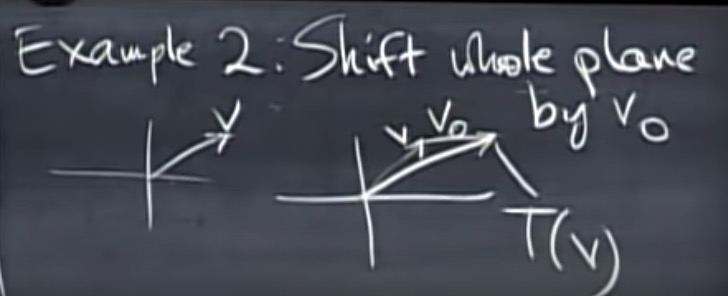 Example 2: Shift whole plane
by v₀
v
v v₀
T(v)